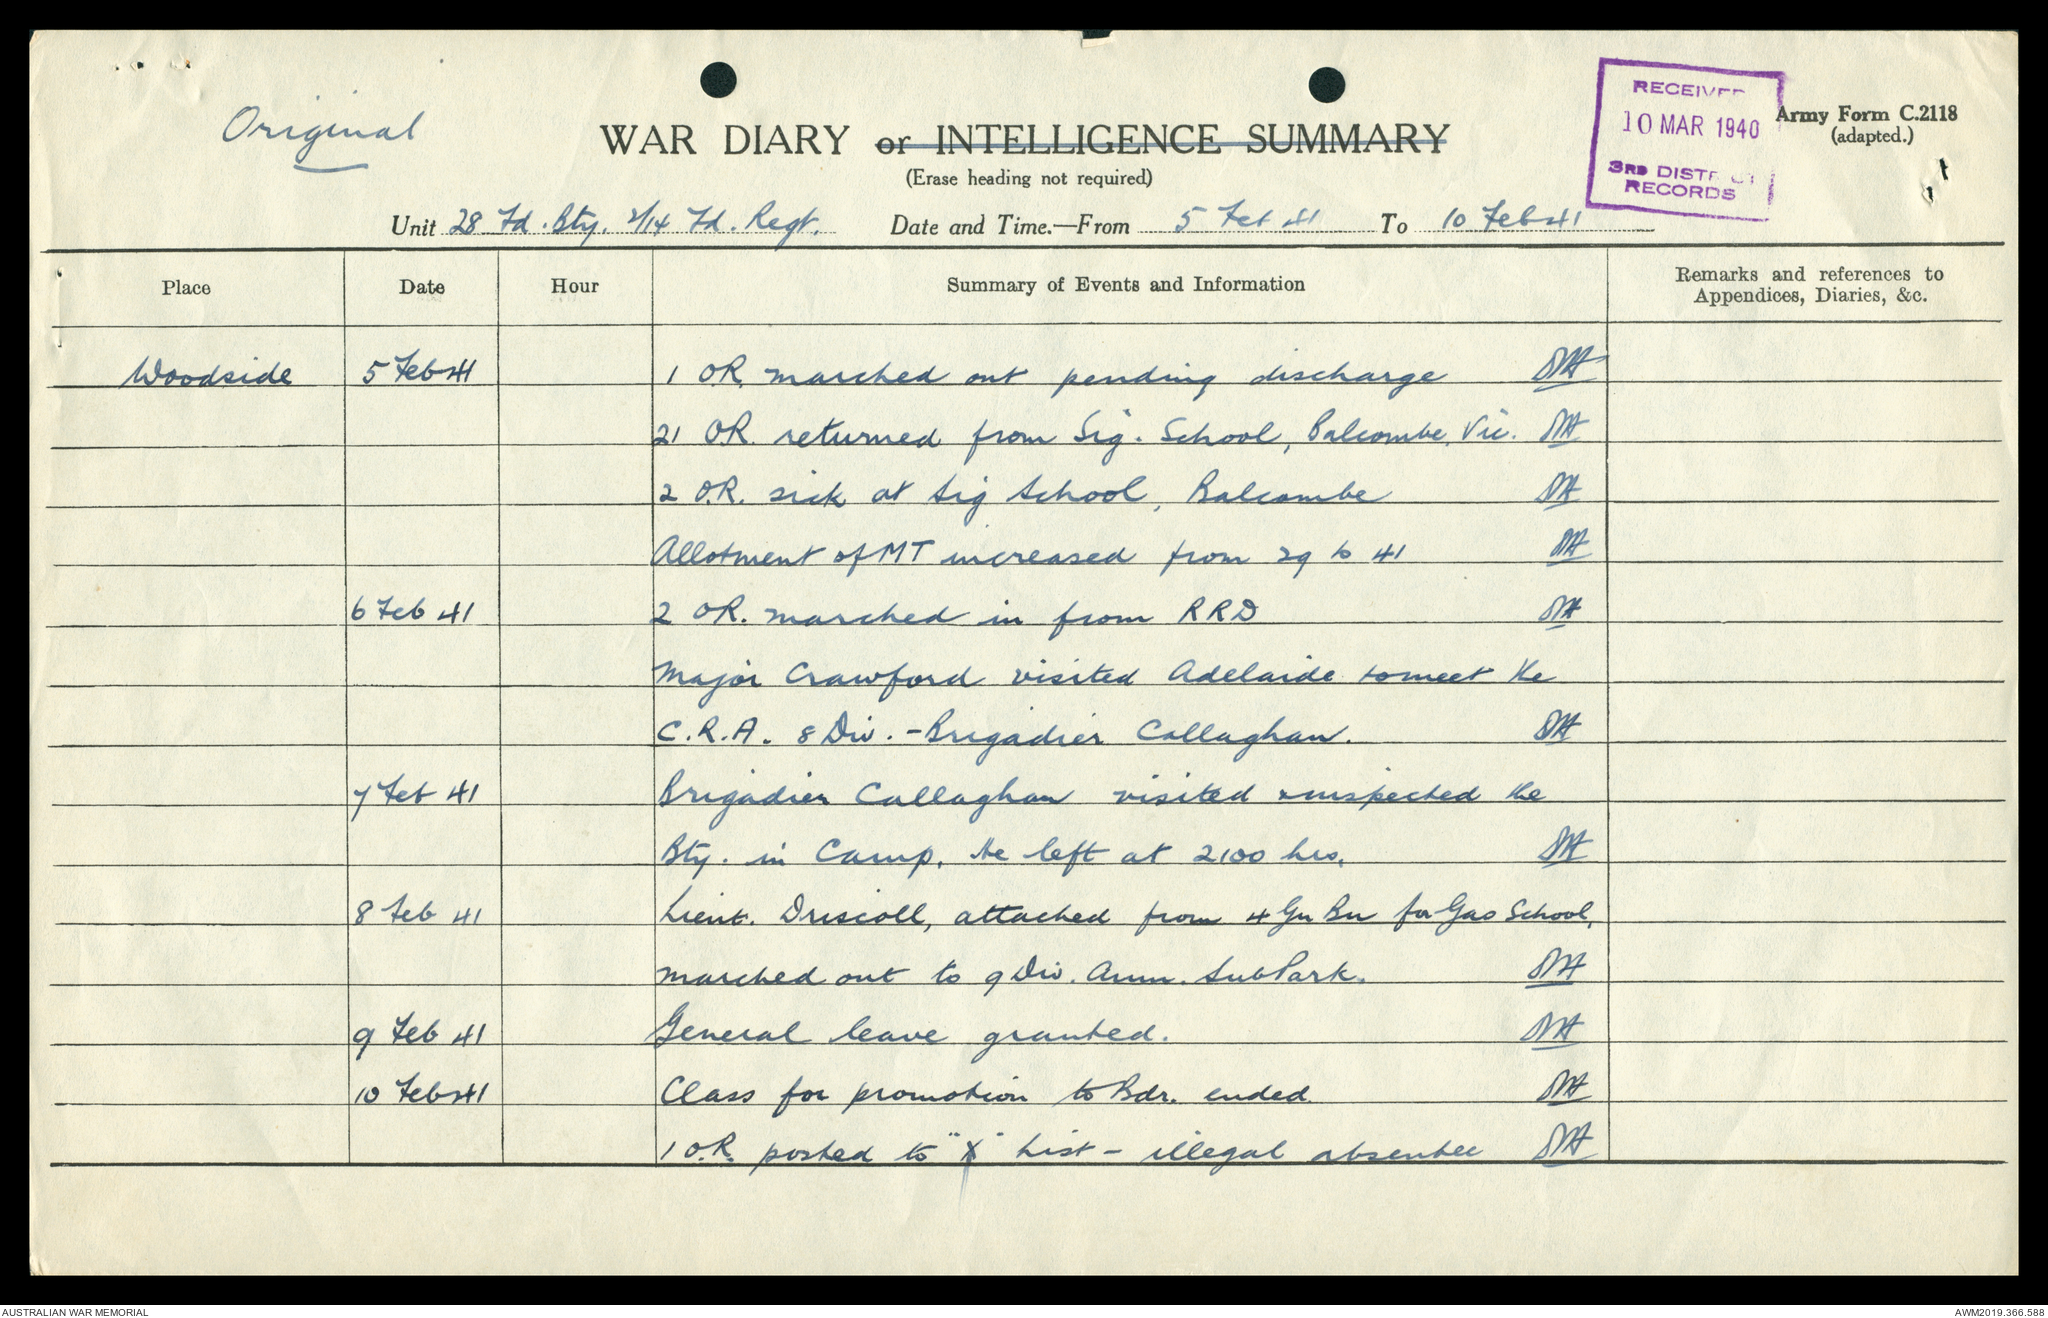 Original
WAR DIARY or INTELLIGENCE SUMMARY
(Erase heading not required)
RECEIVED
10 MAR 1940
3RD DISTRICT
RECORDS
Army Form C.2118
(adapted.)
Unit 28 Fd. Bty. 2/14 Fd. Regt. Date and Time.—From 5 Feb 41 To 10 Feb 41
Place Date Hour Summary of Events and Information Remarks and references to
Appendices, Diaries, &c.
Woodside 5 Feb 41 1 O.R. marched out pending discharge
21 OR. returned from Sig. School, Balcombe, Vic.
2 O.R. sick at Sig School, Balcombe
Allotment of MT increased from 29 to 41
6 Feb 41 2 OR. marched in from RRD
Major Crawford visited Adelaide to meet the
C.R.A. 8 Div. - Brigadier Callaghan.
7 Feb 41 Brigadier Callaghan visited & inspected the
Bty. in Camp. He left at 2100 hrs.
8 Feb 41 Lieut. Driscoll, attached from 4 Gn Bn for Gas School,
marched out to 9 Div. Amm. Sub Park.
9 Feb 41 General leave granted.
10 Feb 41 Class for promotion to Bdr. ended
1 O.R. posted to "X" List - illegal absentee
AUSTRALIAN WAR MEMORIAL AWM2019.366.588